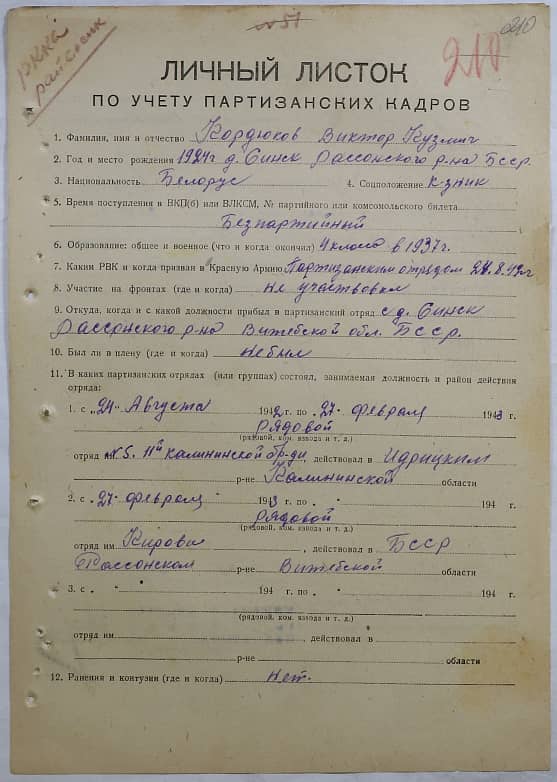 № 51
210
РККа
райсобес
210
ЛИЧНЫЙ ЛИСТОК
ПО УЧЕТУ ПАРТИЗАНСКИХ КАДРОВ
1. Фамилия, имя и отчество Кордюков Виктор Кузмич
2. Год и место рождения 1924г д. Синск Рассонского р-на БССР.
3. Национальность Белорус 4. Соцположение к-зник
5. Время поступления в ВКП(б) или ВЛКСМ, № партийного или комсомольского билета
Безпартийный
6. Образование: общее и военное (что и когда окончил) 4 класса в 1937г.
7. Каким РВК и когда призван в Красную Армию Партизанским отрядом 24.8.42г
8. Участие на фронтах (где и когда) не участвовал
9. Откуда, когда и с какой должности прибыл в партизанский отряд с д. Синск
Рассонского р-на Витебской обл. БССР.
10. Был ли в плену (где и когда) не был
11. В каких партизанских отрядах (или группах) состоял, занимаемая должность и район действия
отряда:
1. с „24" Августа 1942 г. по „27" февраля 1943 г.
Рядовой
(рядовой, ком. взвода и т. д.)
отряд № 5. 11й Калининской бр-ди, действовал в Идрицким
р-не Калининской области
2. с „27" февраля 1943 г. по „ " 194 г.
Рядовой
(рядовой, ком. взвода и т. д.)
отряд им Кирова, действовал в БССР
Рассонском р-не Витебской области
3. с „ " 194 г. по „ " 194 г.
(рядовой, ком. взвода и т. д.)
отряд им., действовал в
р-не области
12. Ранения и контузии (где и когда) Нет.